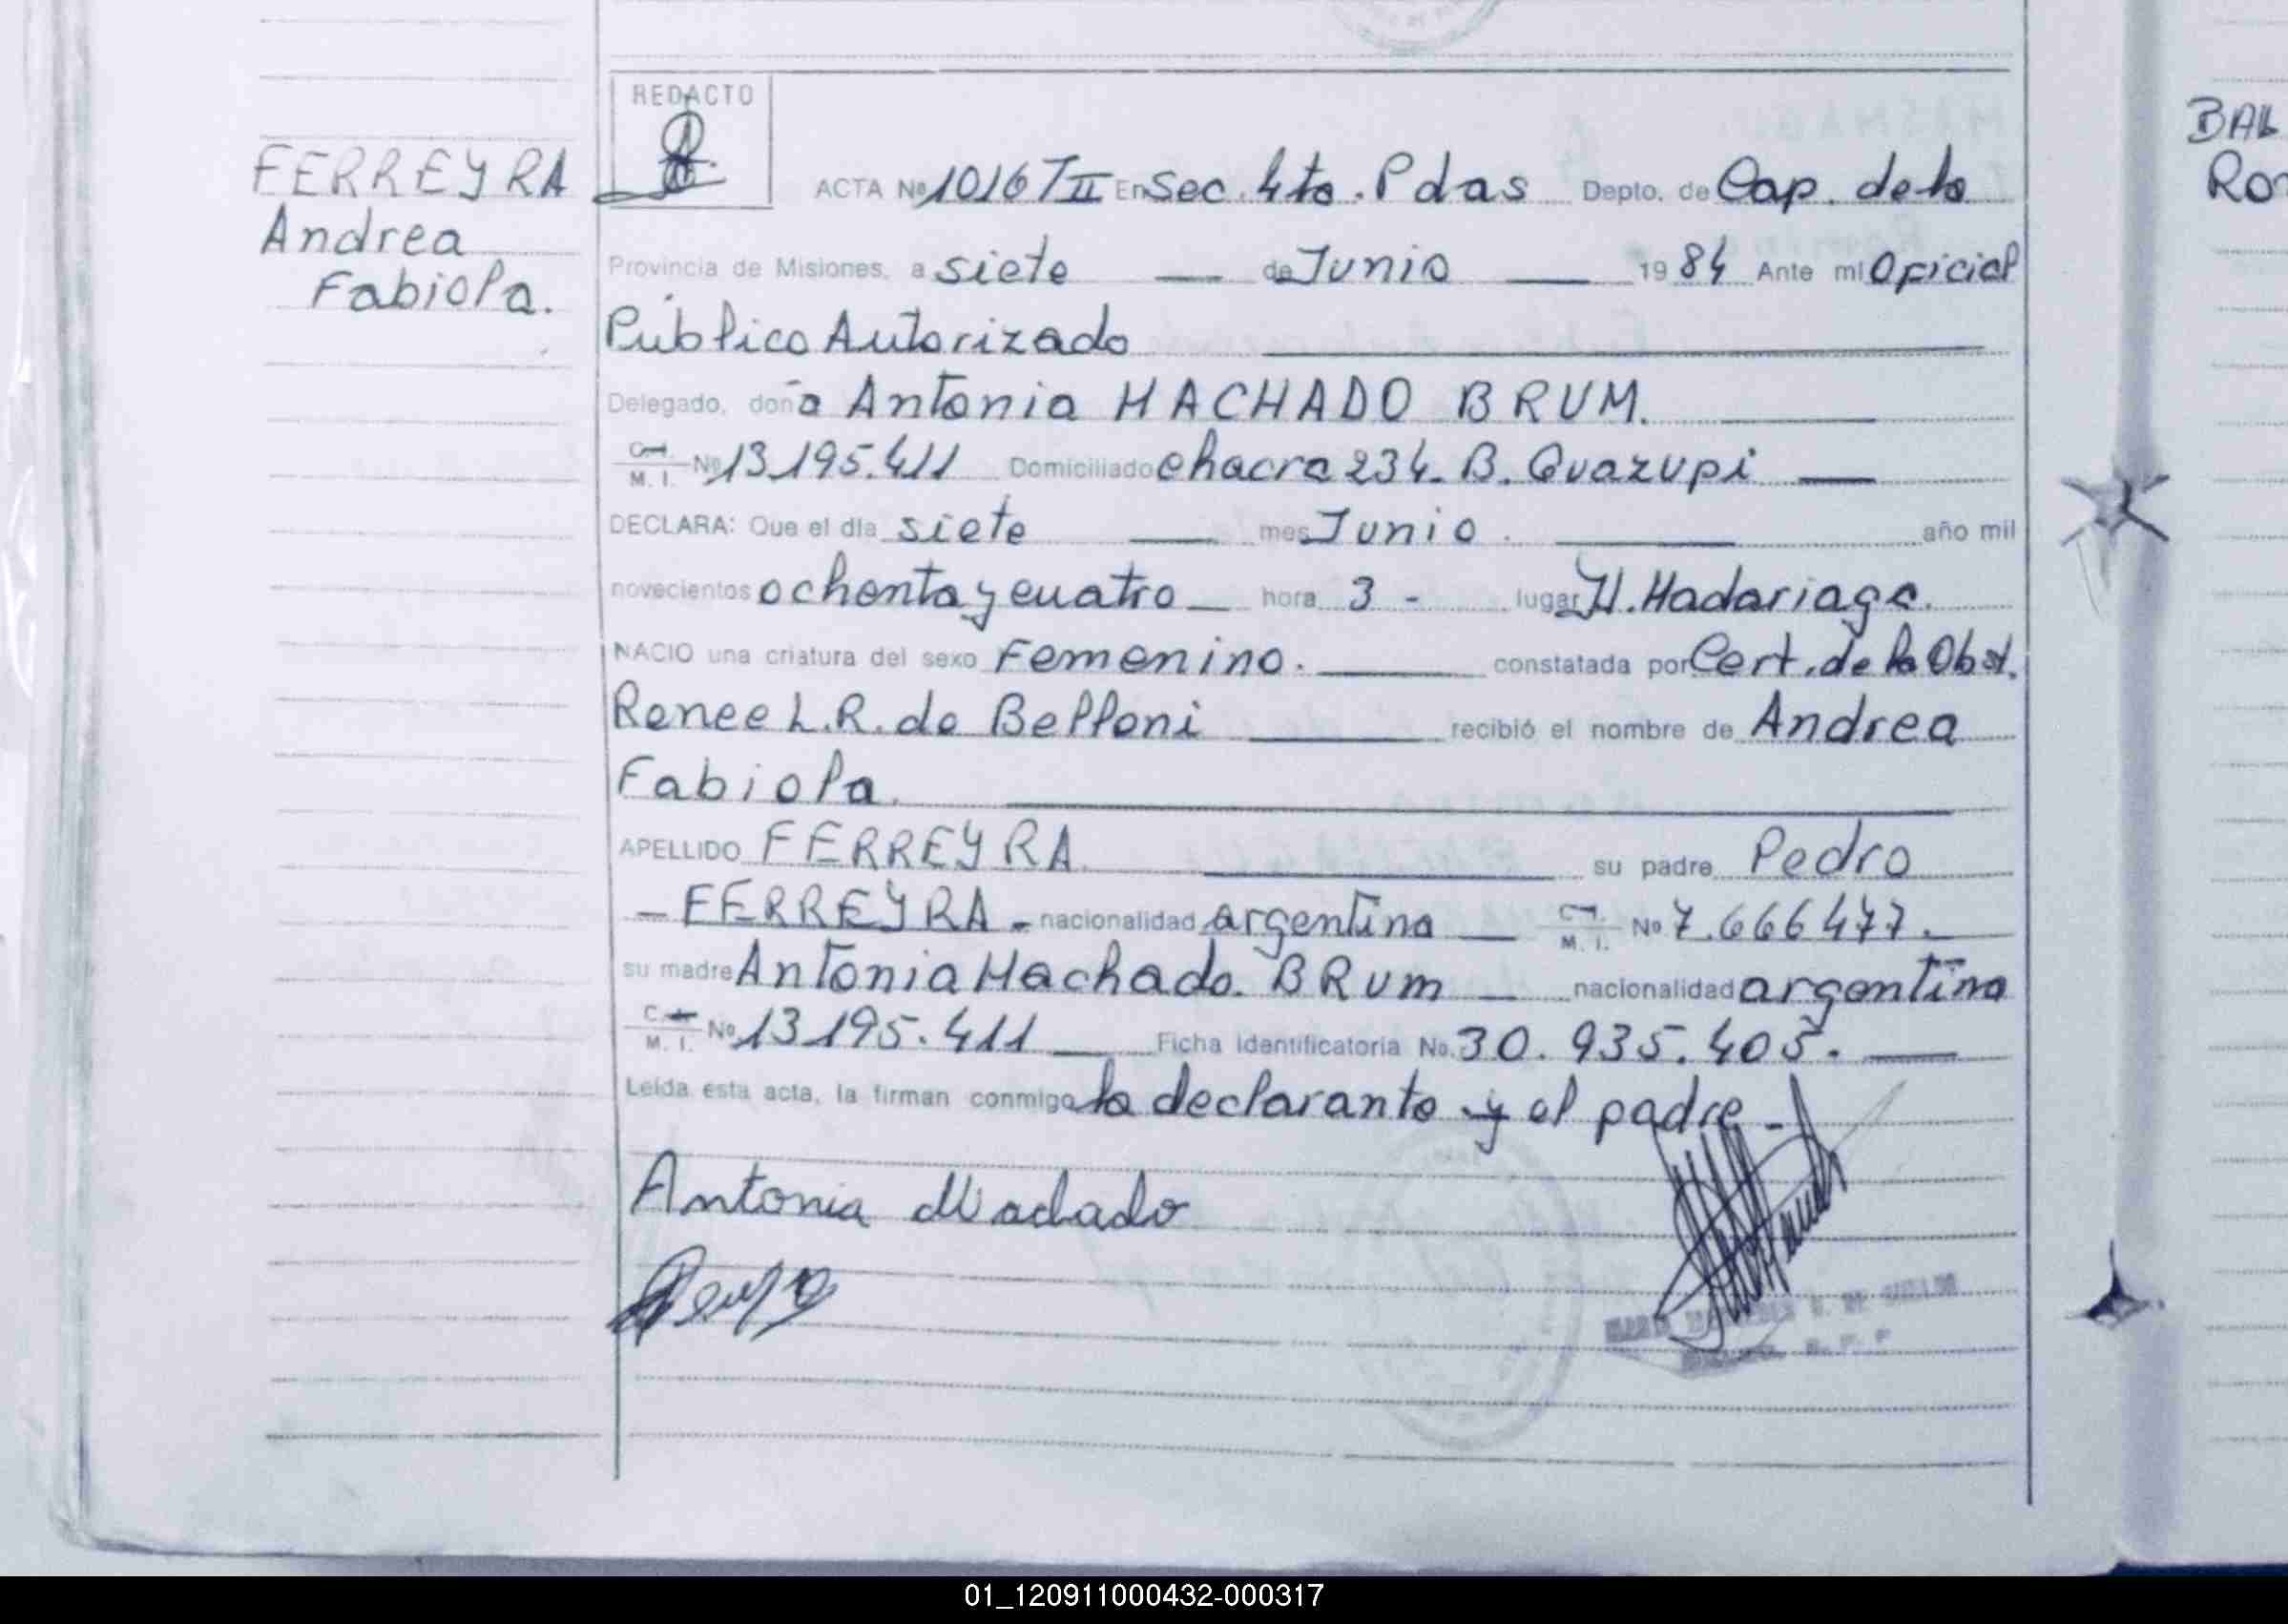 REDACTO
FERREYRA
Andrea
Fabiola.
ACTA Nº 1016 T II En Sec. 4ta. Pdas Depto. de Cap. de la
Provincia de Misiones, a siete — de Junio — 1984 Ante mi Oficial
Público Autorizado
Delegado, doña Antonia MACHADO BRUM.
C.I. M. I. Nº 13.195.411 Domiciliado chacra 234. B. Guazupi —
DECLARA: Que el día siete — mes Junio. — año mil
novecientos ochenta y cuatro — hora 3 - lugar H. Madariaga.
NACIO una criatura del sexo Femenino. — constatada por Cert. de la Obst.
Renee L.R. de Belloni — recibió el nombre de Andrea
Fabiola.
APELLIDO FERREYRA — su padre Pedro
— FERREYRA - nacionalidad argentina — C.I. M. I. Nº 7.666477.
su madre Antonia Machado. BRUM — nacionalidad argentina
C.I. M. I. Nº 13195.411 — Ficha Identificatoria No. 30.935.405. —
Leída esta acta, la firman conmigo la declarante y el padre -
Antonia Machado
BAL
Ro
01_120911000432-000317